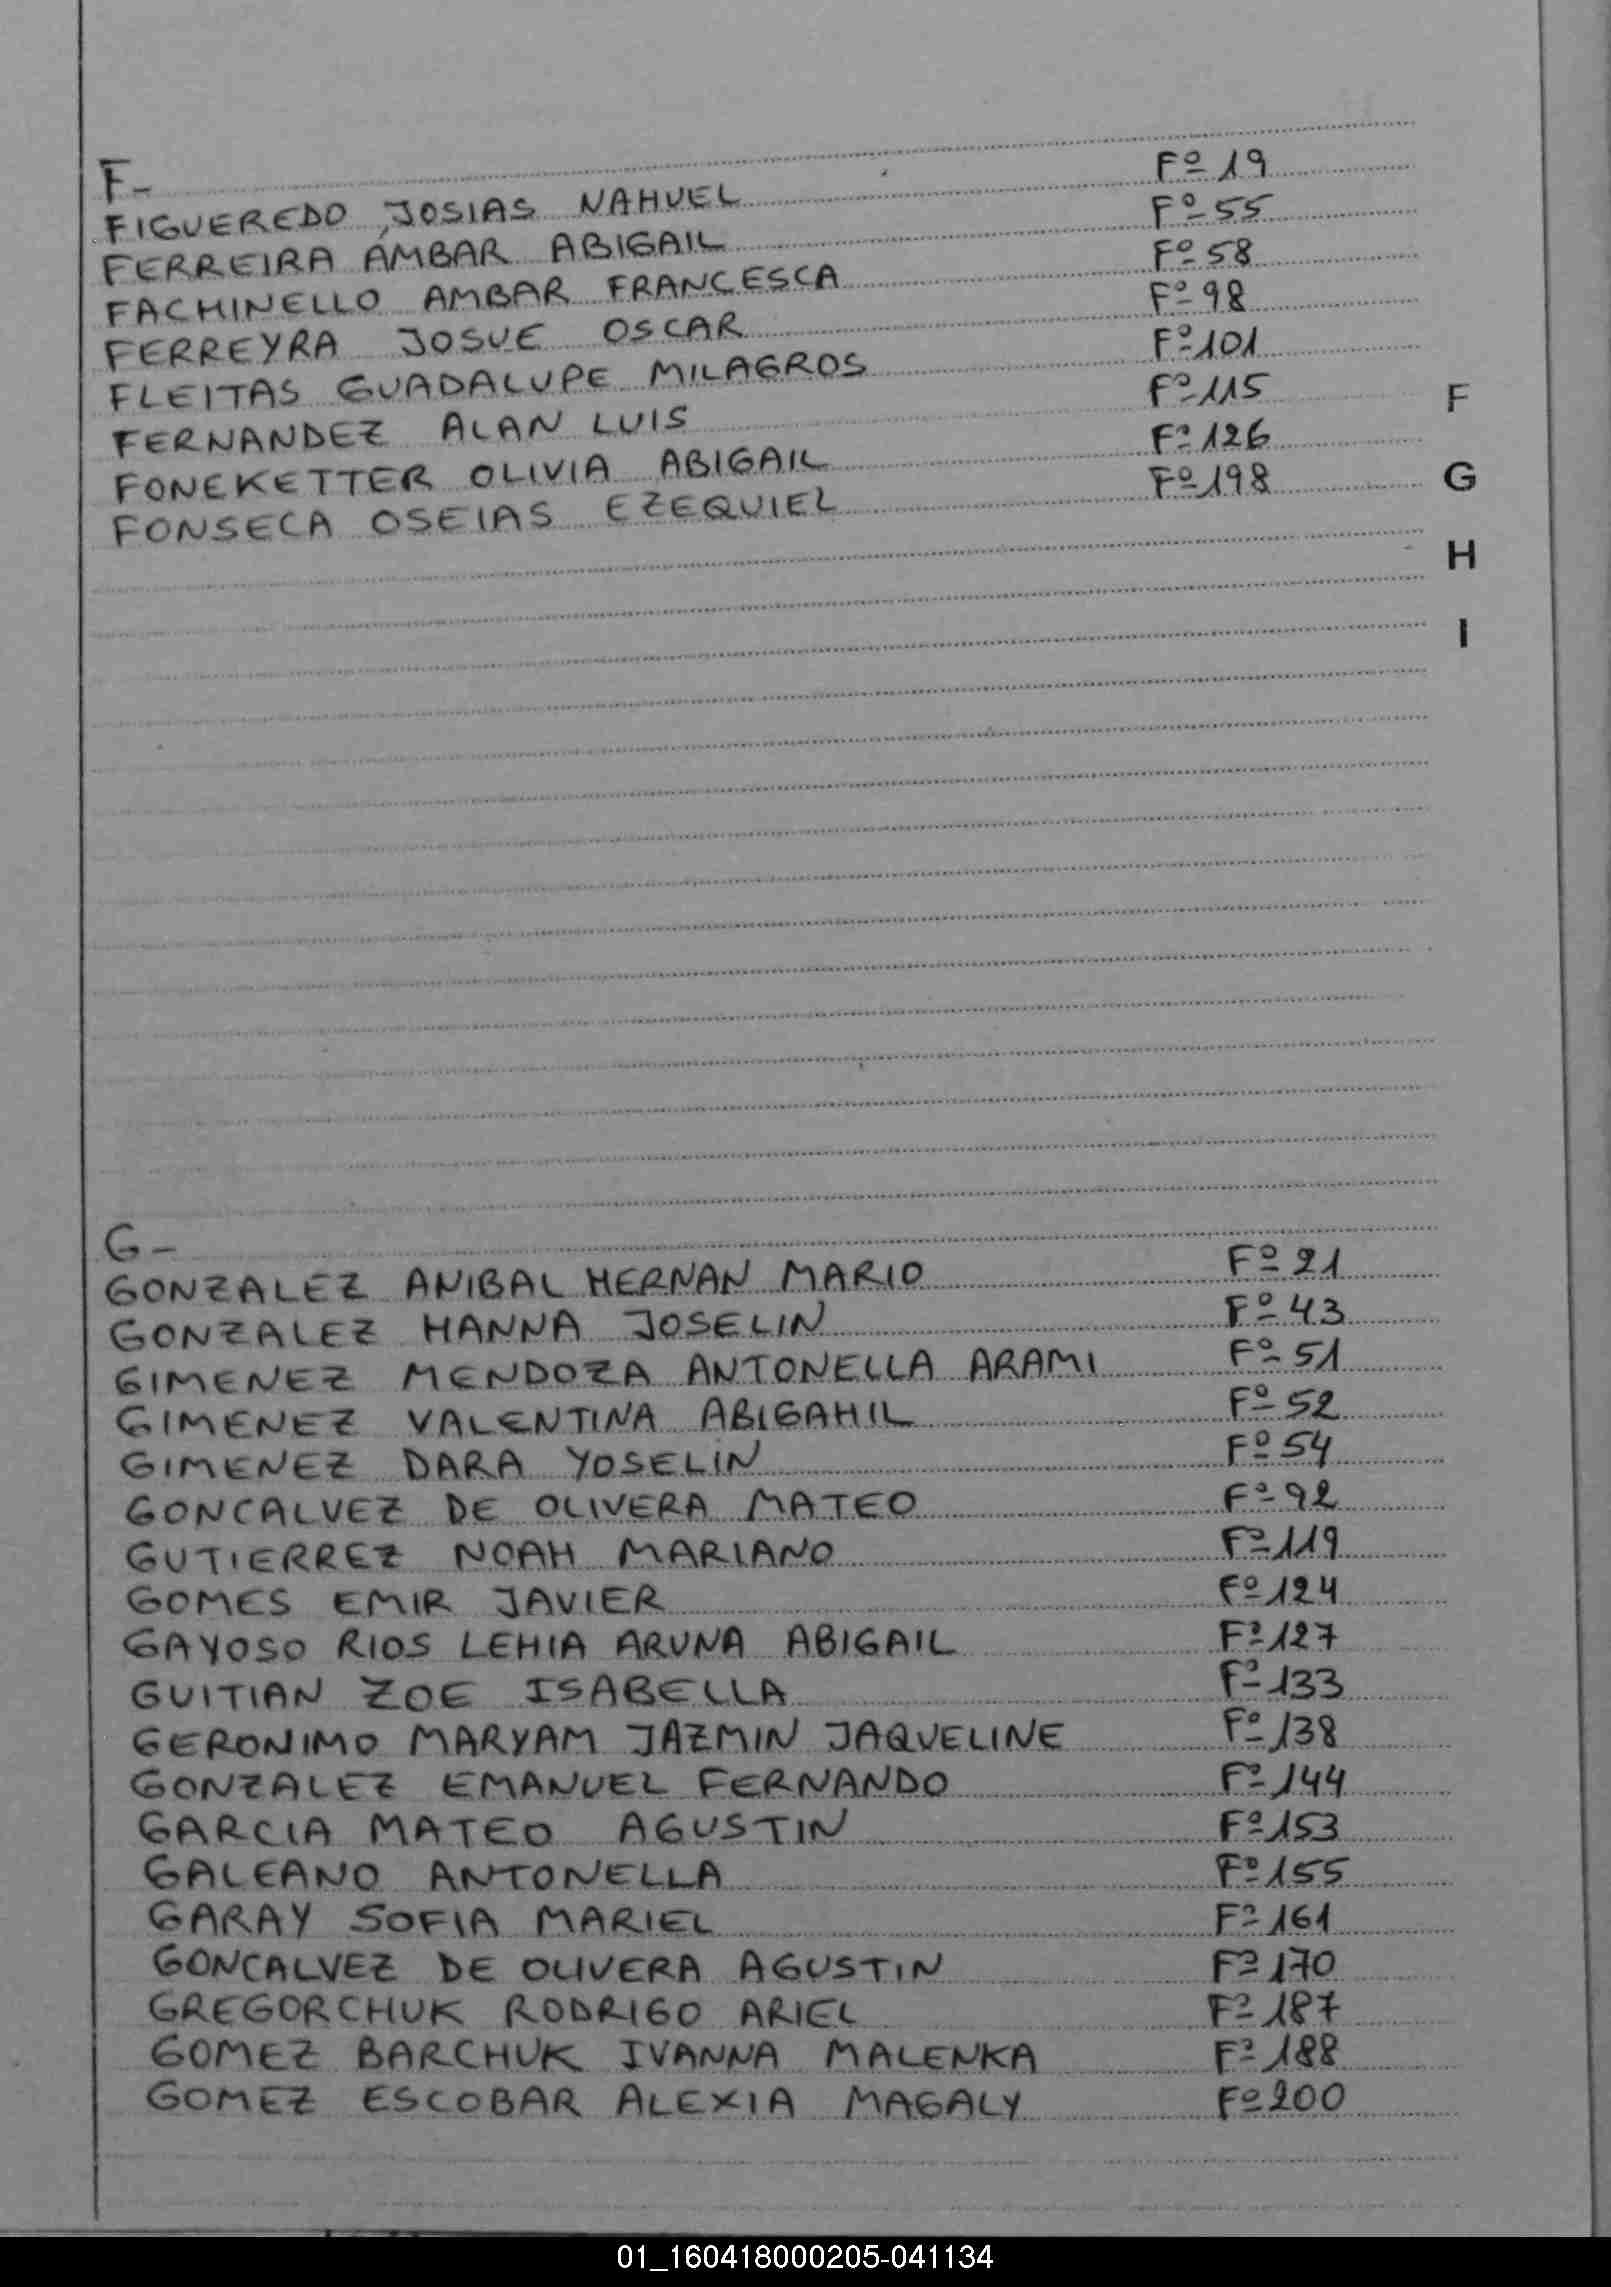 F-
FIGUEREDO JOSIAS NAHUEL Fº 19
FERREIRA AMBAR ABIGAIL Fº 55
FACHINELLO AMBAR FRANCESCA Fº 58
FERREYRA JOSUE OSCAR Fº 98
FLEITAS GUADALUPE MILAGROS Fº 101
FERNANDEZ ALAN LUIS Fº 115
FONEKETTER OLIVIA ABIGAIL Fº 126
FONSECA OSEIAS EZEQUIEL Fº 198
F
G
H
I
G-
GONZALEZ ANIBAL HERNAN MARIO Fº 21
GONZALEZ HANNA JOSELIN Fº 43
GIMENEZ MENDOZA ANTONELLA ARAMI Fº 51
GIMENEZ VALENTINA ABIGAHIL Fº 52
GIMENEZ DARA YOSELIN Fº 54
GONCALVEZ DE OLIVERA MATEO Fº 92
GUTIERREZ NOAH MARIANO Fº 119
GOMES EMIR JAVIER Fº 124
GAYOSO RIOS LEHIA ARUNA ABIGAIL Fº 127
GUITIAN ZOE ISABELLA Fº 133
GERONIMO MARYAM JAZMIN JAQUELINE Fº 138
GONZALEZ EMANUEL FERNANDO Fº 144
GARCIA MATEO AGUSTIN Fº 153
GALEANO ANTONELLA Fº 155
GARAY SOFIA MARIEL Fº 161
GONCALVEZ DE OLIVERA AGUSTIN Fº 170
GREGORCHUK RODRIGO ARIEL Fº 187
GOMEZ BARCHUK IVANNA MALENKA Fº 188
GOMEZ ESCOBAR ALEXIA MAGALY Fº 200
01_160418000205-041134